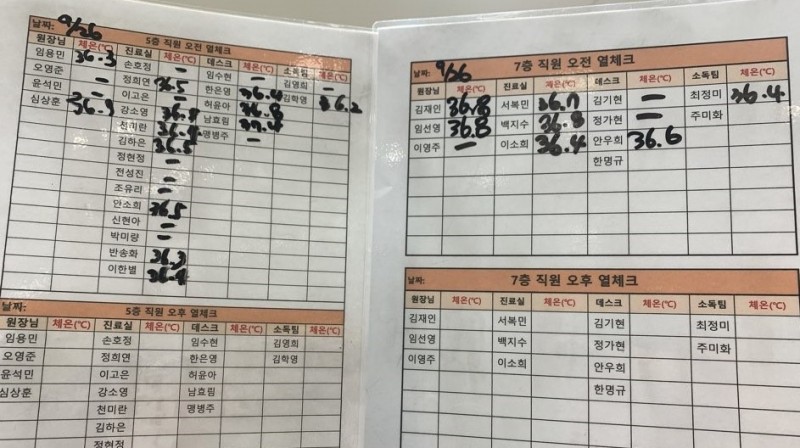 날짜: 9/26 5층 직원 오전 열체크
원장님 체온(℃) 진료실 체온(℃) 데스크 체온(℃) 소독팀 체온(℃)
임용민 36.3 손호정 — 임수현 — 김영희 —
오영준 — 정희연 36.5 한은영 36.4 김학영 36.2
윤석민 — 이고은 — 허윤아 36.8
심상훈 36.9 강소영 남효림 37.4
천미란 맹병주 —
김하은 36.5
정현정 —
전성진 —
조유라 —
안소희 36.5
신현아 —
박미량 —
반송화 36.3
이한별 36.4
날짜: 5층 직원 오후 열체크
원장님 체온(℃) 진료실 체온(℃) 데스크 체온(℃) 소독팀 체온(℃)
임용민 손호정 임수현 김영희
오영준 정희연 한은영 김학영
윤석민 이고은 허윤아
심상훈 강소영 남효림
천미란 맹병주
김하은
정현정
날짜: 9/26 7층 직원 오전 열체크
원장님 체온(℃) 진료실 체온(℃) 데스크 체온(℃) 소독팀 체온(℃)
김재인 36.8 서복민 36.7 김기현 — 최정미 36.4
임선영 36.8 백지수 36.8 정가현 — 주미화
이영주 — 이소희 36.4 안우희 36.6
한명규
날짜: 7층 직원 오후 열체크
원장님 체온(℃) 진료실 체온(℃) 데스크 체온(℃) 소독팀 체온(℃)
김재인 서복민 김기현 최정미
임선영 백지수 정가현 주미화
이영주 이소희 안우희
한명규